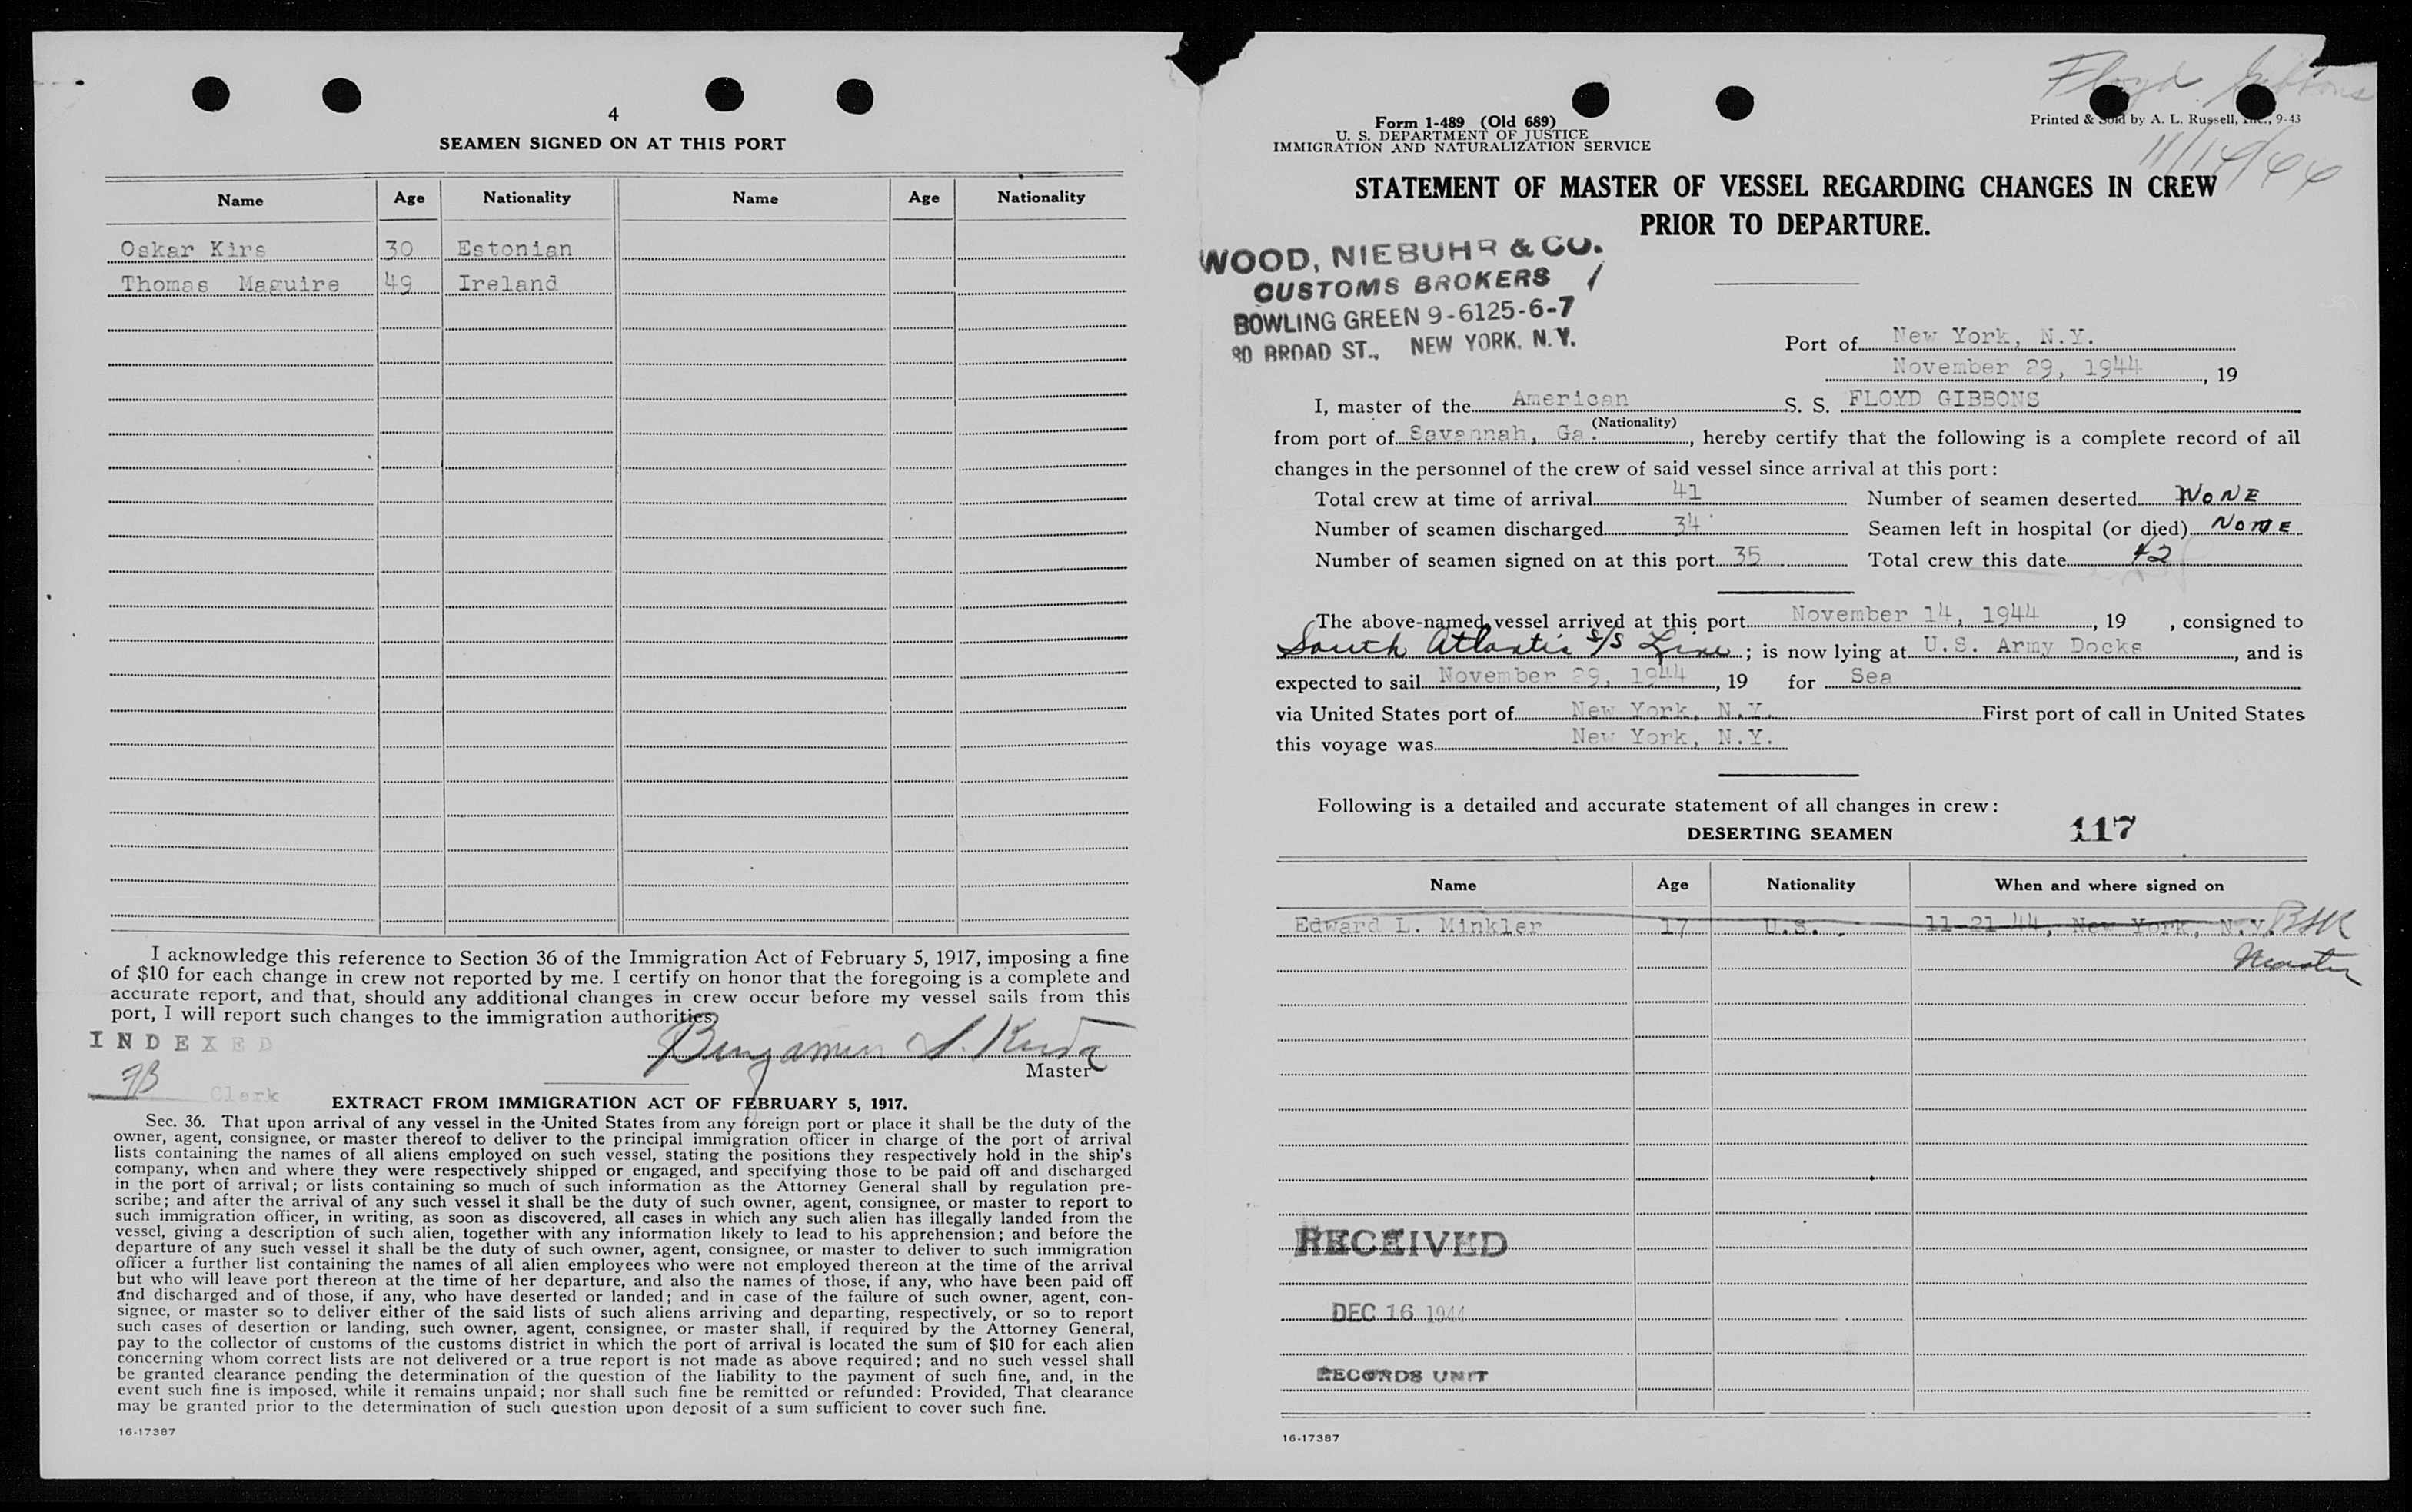 4
SEAMEN SIGNED ON AT THIS PORT
Name Age Nationality Name Age Nationality
Oskar Kirs 30 Estonian
Thomas Maguire 49 Ireland
I acknowledge this reference to Section 36 of the Immigration Act of February 5, 1917, imposing a fine
of $10 for each change in crew not reported by me. I certify on honor that the foregoing is a complete and
accurate report, and that, should any additional changes in crew occur before my vessel sails from this
port, I will report such changes to the immigration authorities.
INDEXED
Benjamin
Master
Clerk
EXTRACT FROM IMMIGRATION ACT OF FEBRUARY 5, 1917.
Sec. 36. That upon arrival of any vessel in the United States from any foreign port or place it shall be the duty of the
owner, agent, consignee, or master thereof to deliver to the principal immigration officer in charge of the port of arrival
lists containing the names of all aliens employed on such vessel, stating the positions they respectively hold in the ship's
company, when and where they were respectively shipped or engaged, and specifying those to be paid off and discharged
in the port of arrival; or lists containing so much of such information as the Attorney General shall by regulation pre-
scribe; and after the arrival of any such vessel it shall be the duty of such owner, agent, consignee, or master to report to
such immigration officer, in writing, as soon as discovered, all cases in which any such alien has illegally landed from the
vessel, giving a description of such alien, together with any information likely to lead to his apprehension; and before the
departure of any such vessel it shall be the duty of such owner, agent, consignee, or master to deliver to such immigration
officer a further list containing the names of all alien employees who were not employed thereon at the time of the arrival
but who will leave port thereon at the time of her departure, and also the names of those, if any, who have been paid off
and discharged and of those, if any, who have deserted or landed; and in case of the failure of such owner, agent, con-
signee, or master so to deliver either of the said lists of such aliens arriving and departing, respectively, or so to report
such cases of desertion or landing, such owner, agent, consignee, or master shall, if required by the Attorney General,
pay to the collector of customs of the customs district in which the port of arrival is located the sum of $10 for each alien
concerning whom correct lists are not delivered or a true report is not made as above required; and no such vessel shall
be granted clearance pending the determination of the question of the liability to the payment of such fine, and, in the
event such fine is imposed, while it remains unpaid; nor shall such fine be remitted or refunded: Provided, That clearance
may be granted prior to the determination of such question upon deposit of a sum sufficient to cover such fine.
16-17387
Floyd Gibbons
11/14/44
Form 1-489 (Old 689)
U. S. DEPARTMENT OF JUSTICE
IMMIGRATION AND NATURALIZATION SERVICE
Printed & Sold by A. L. Russell, Inc., 9-43
STATEMENT OF MASTER OF VESSEL REGARDING CHANGES IN CREW
PRIOR TO DEPARTURE.
WOOD, NIEBUHR & CO.
CUSTOMS BROKERS
BOWLING GREEN 9-6125-6-7
80 BROAD ST., NEW YORK, N. Y.
Port of New York, N.Y.
November 29, 1944, 19
I, master of the American S. S. FLOYD GIBBONS
(Nationality)
from port of Savannah, Ga., hereby certify that the following is a complete record of all
changes in the personnel of the crew of said vessel since arrival at this port:
Total crew at time of arrival 41 Number of seamen deserted NONE
Number of seamen discharged 34 Seamen left in hospital (or died) NONE
Number of seamen signed on at this port 35 Total crew this date 42
The above-named vessel arrived at this port November 14, 1944, 19 , consigned to
South Atlantic S/S Line; is now lying at U.S. Army Docks, and is
expected to sail November 29, 1944, 19 for Sea
via United States port of New York, N.Y. First port of call in United States
this voyage was New York, N.Y.
Following is a detailed and accurate statement of all changes in crew:
DESERTING SEAMEN 117
Name Age Nationality When and where signed on
Edward L. Minkler 17 U.S. 11-21-44, New York, N.Y. BSK
Master
RECEIVED
DEC 16 1944
RECORDS UNIT
16-17387